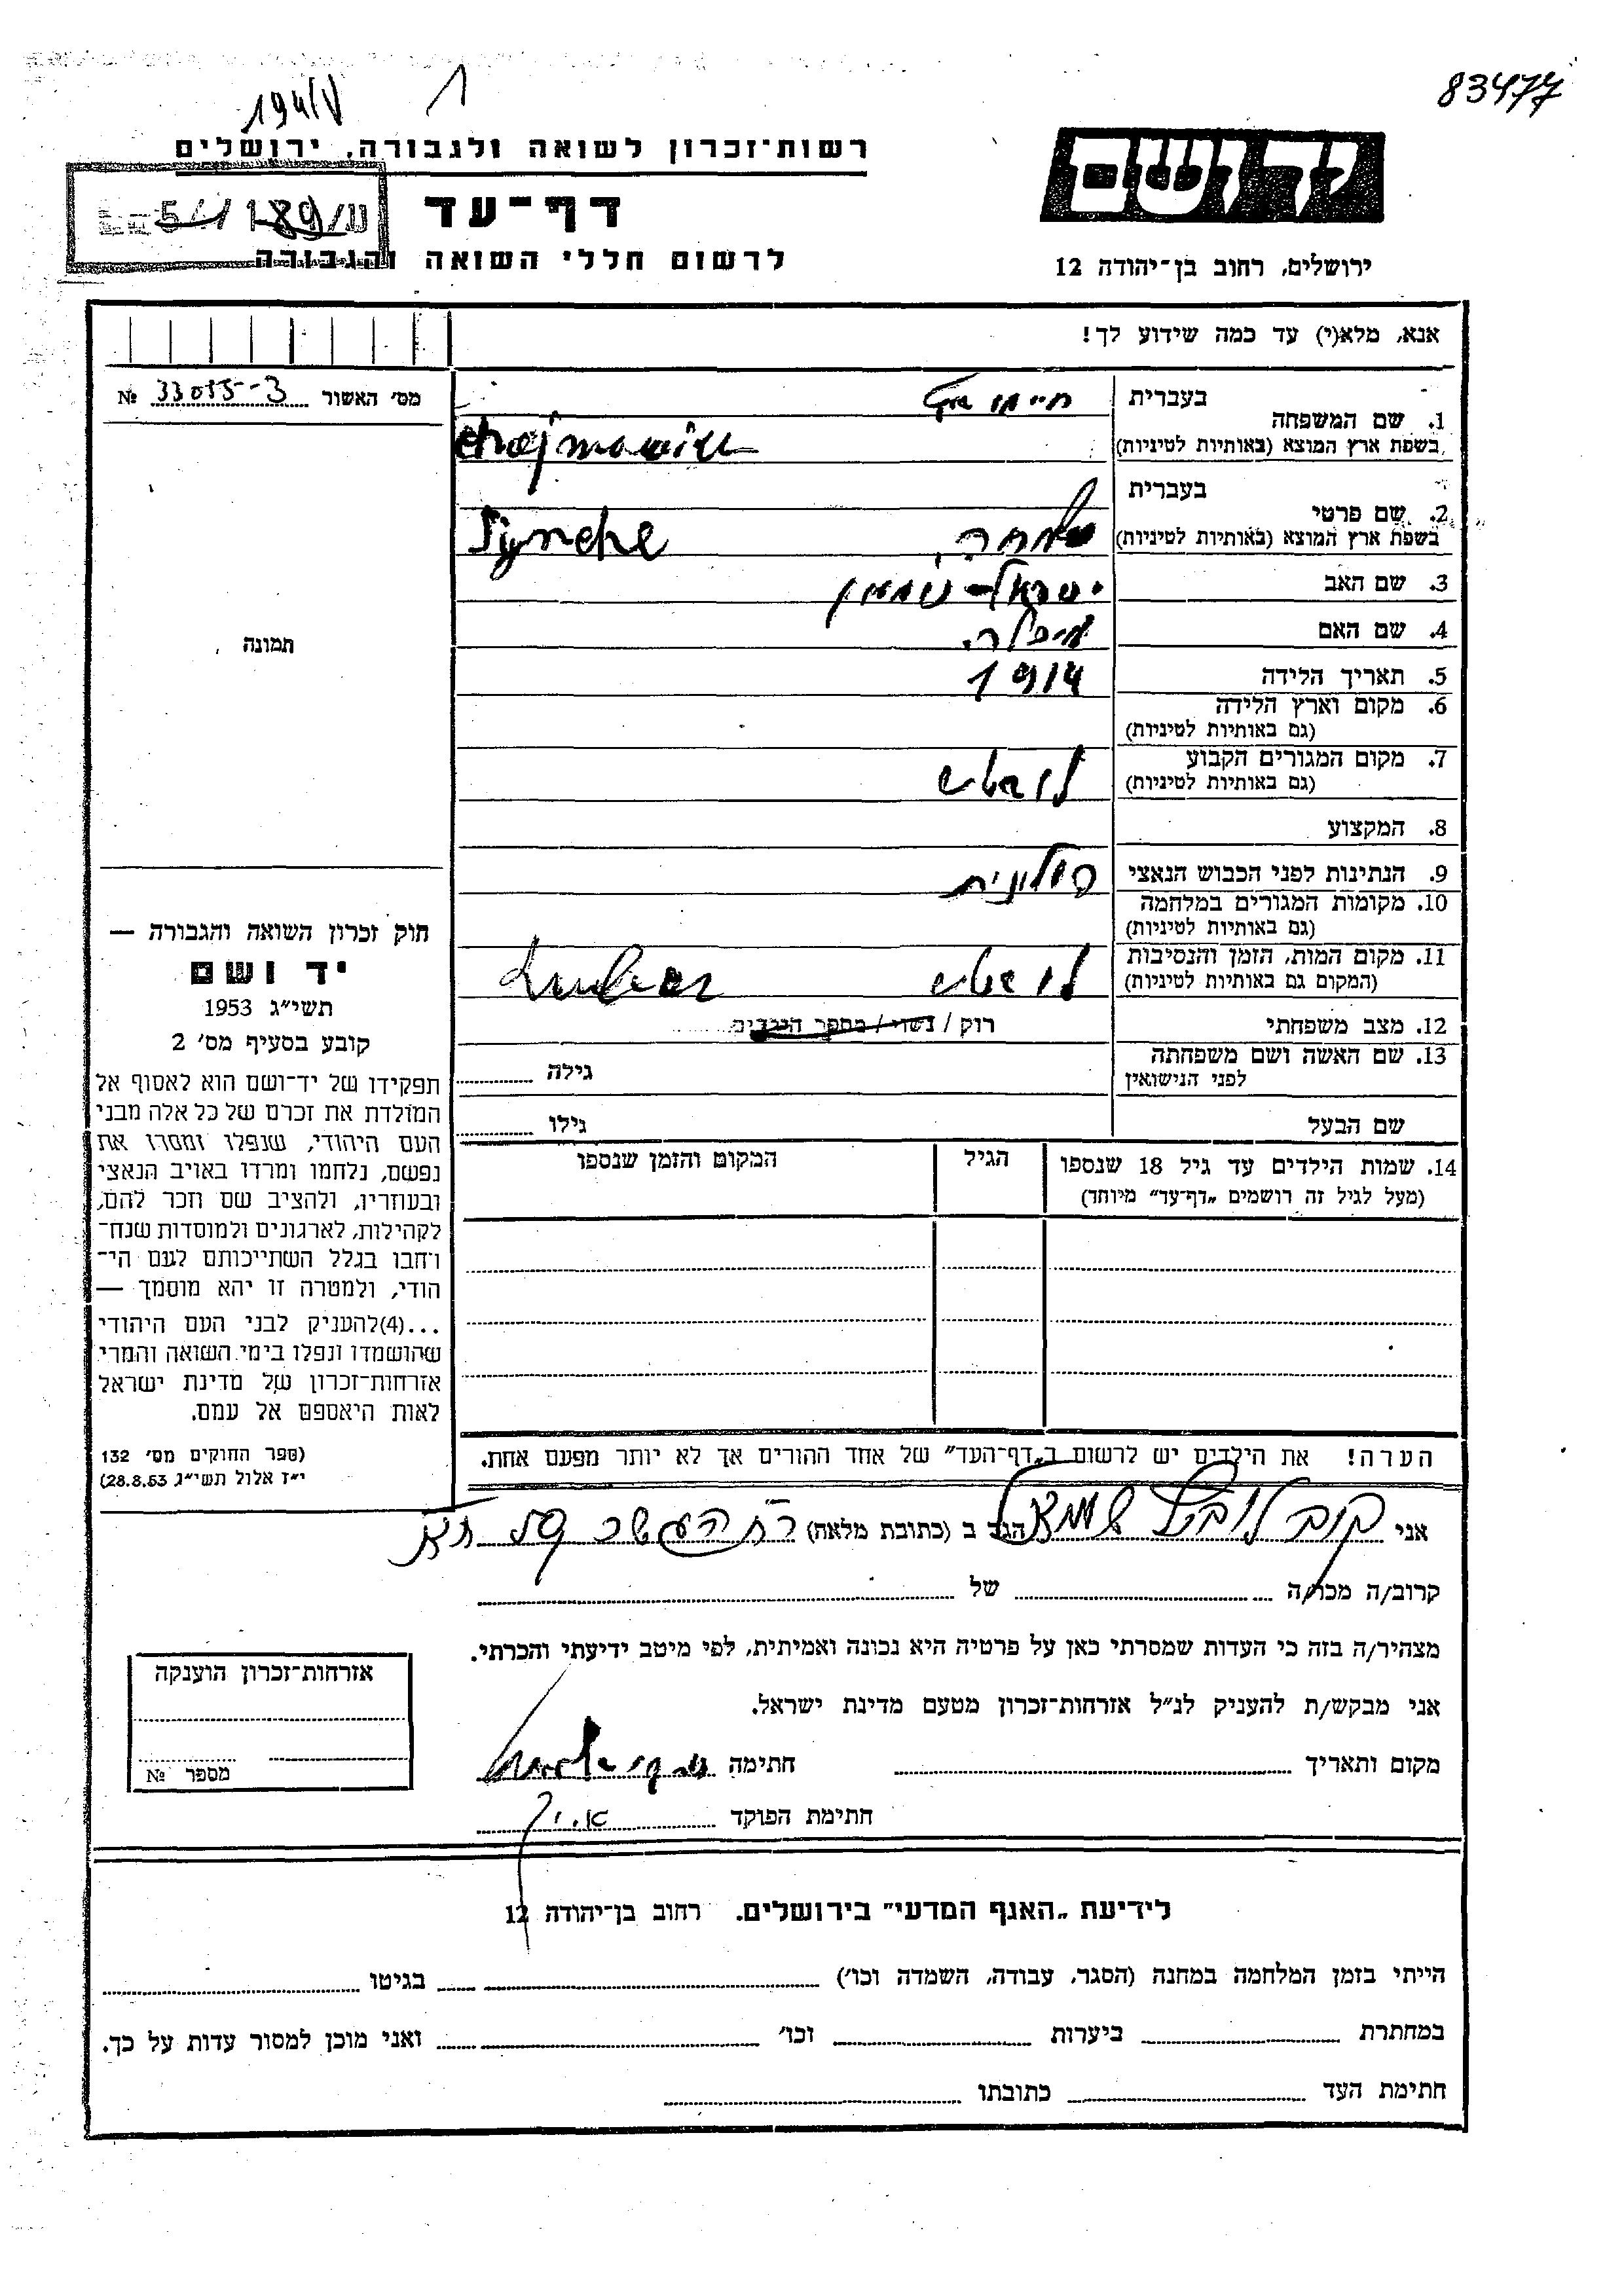 83477
1
רשות־זכרון לשואה ולגבורה, ירושלים
יד ושם
דף־עד
לרשום חללי השואה והגבורה
ירושלים, רחוב בן־יהודה 12
אנא, מלא(י) עד כמה שידוע לך!
מס׳ האשור № 33035-3
בעברית
1. שם המשפחה
בשפת ארץ המוצא (באותיות לטיניות)
בעברית
2. שם פרטי שמחה
בשפת ארץ המוצא (באותיות לטיניות) Symche
3. שם האב ישראל-
4. שם האם
5. תאריך הלידה 1914
6. מקום וארץ הלידה
(גם באותיות לטיניות)
7. מקום המגורים הקבוע
(גם באותיות לטיניות)
8. המקצוע
9. הנתינות לפני הכבוש הנאצי פולנית
10. מקומות המגורים במלחמה
(גם באותיות לטיניות)
11. מקום המות, הזמן והנסיבות
(המקום גם באותיות לטיניות)
12. מצב משפחתי רוק / נשוי / מספר הילדים
13. שם האשה ושם משפחתה
לפני הנישואין גילה
שם הבעל גילו
14. שמות הילדים עד גיל 18 שנספו הגיל המקום והזמן שנספו
(מעל לגיל זה רושמים „דף־עד״ מיוחד)
הערה! את הילדים יש לרשום ב„דף־העד״ של אחד ההורים אך לא יותר מפעם אחת.
תמונה
חוק זכרון השואה והגבורה —
יד ושם
תשי״ג 1953
קובע בסעיף מס׳ 2
תפקידו של יד־ושם הוא לאסוף אל
המולדת את זכרם של כל אלה מבני
העם היהודי, שנפלו ומסרו את
נפשם, נלחמו ומרדו באויב הנאצי
ובעוזריו, ולהציב שם וזכר להם,
לקהילות, לארגונים ולמוסדות שנח־
רבו בגלל השתייכותם לעם הי־
הודי, ולמטרה זו יהא מוסמך —
...(4) להעניק לבני העם היהודי
שהושמדו ונפלו בימי השואה והמרי
אזרחות־זכרון של מדינת ישראל
לאות היאספם אל עמם.
(ספר החוקים מס׳ 132
י״ז אלול תשי״ג 28.8.53)
אני הגר ב (כתובת מלאה)
קרוב/ה מכר/ה של
מצהיר/ה בזה כי העדות שמסרתי כאן על פרטיה היא נכונה ואמיתית, לפי מיטב ידיעתי והכרתי.
אני מבקש/ת להעניק לנ״ל אזרחות־זכרון מטעם מדינת ישראל.
מקום ותאריך חתימה
חתימת הפוקד
אזרחות־זכרון הוענקה
מספר №
לידיעת „האגף המדעי״ בירושלים. רחוב בן־יהודה 12
הייתי בזמן המלחמה במחנה (הסגר, עבודה, השמדה וכו׳) בגיטו
במחתרת ביערות וכו׳ ואני מוכן למסור עדות על כך.
חתימת העד כתובתו